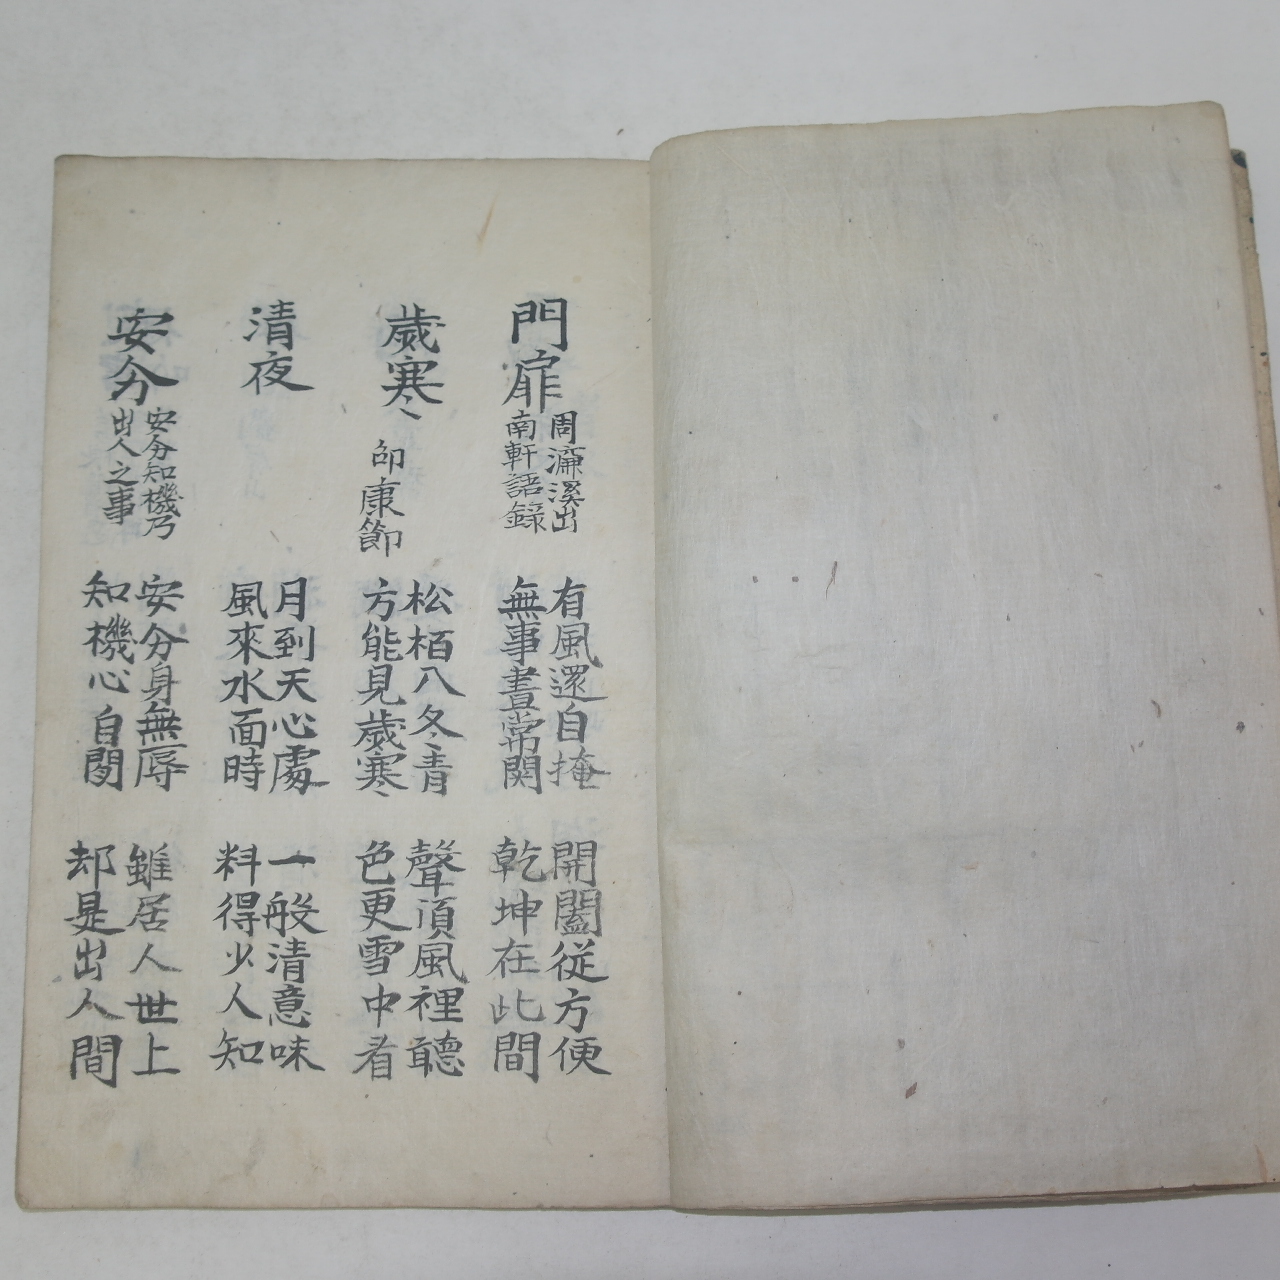 門扉
周濂溪出
南軒語錄
有風還自掩
無事晝常関
開闔從方便
乾坤在此間
歲寒
邵康節
松栢八冬青
方能見歲寒
聲湏風裡聽
色更雪中看
清夜
月到天心處
風來水面時
一般清意味
料得少人知
安分
安分知機乃
出人之事
安分身無辱
知機心自閒
雖居人世上
却是出人間